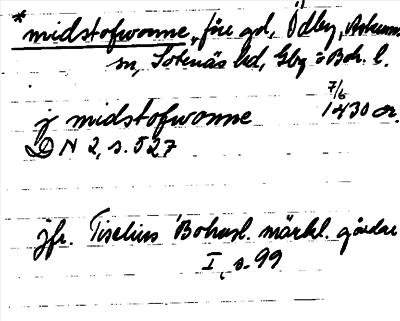 *midstofwonne, före gd, Ödby, Askums
sn, Sotenäs hd, Gbg o Boh. l.
7/6
j midstofwonne 1430 or.
DN 2, s. 527
jfr. Tiselius Bohusl. märkl. gårdar
I, s. 99